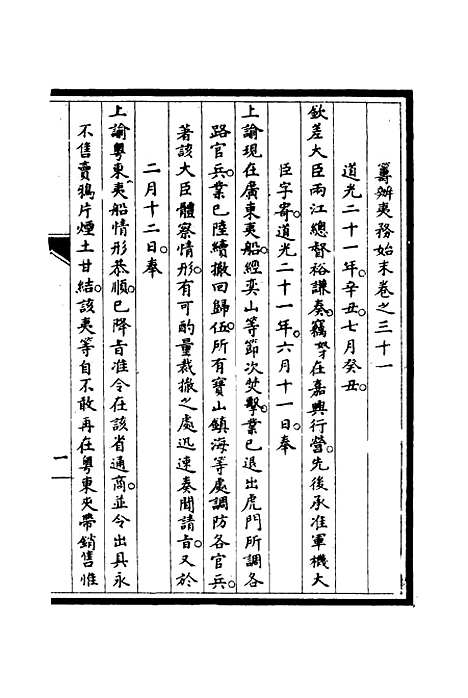 籌辦夷務始末卷之三十一
道光二十一年。辛丑。七月癸丑。
欽差大臣兩江總督裕謙奏。竊奴才在嘉興行營。先後承准軍機大
臣字寄。道光二十一年。六月十一日。奉
上諭現在廣東夷船。經奕山等節次焚擊。業已退出虎門所調各
路官兵。業已陸續撤回歸伍。所有寶山鎮海等處調防各官兵。
著該大臣體察情形。有可酌量裁撤之處迅速奏聞請旨又於
二月十二日。奉
上諭粵東夷船情形恭順。已降旨准令在該省通商。並令出具永
不售賣鴉片煙土甘結。該夷等自不敢再在粵東夾帶銷售惟
一